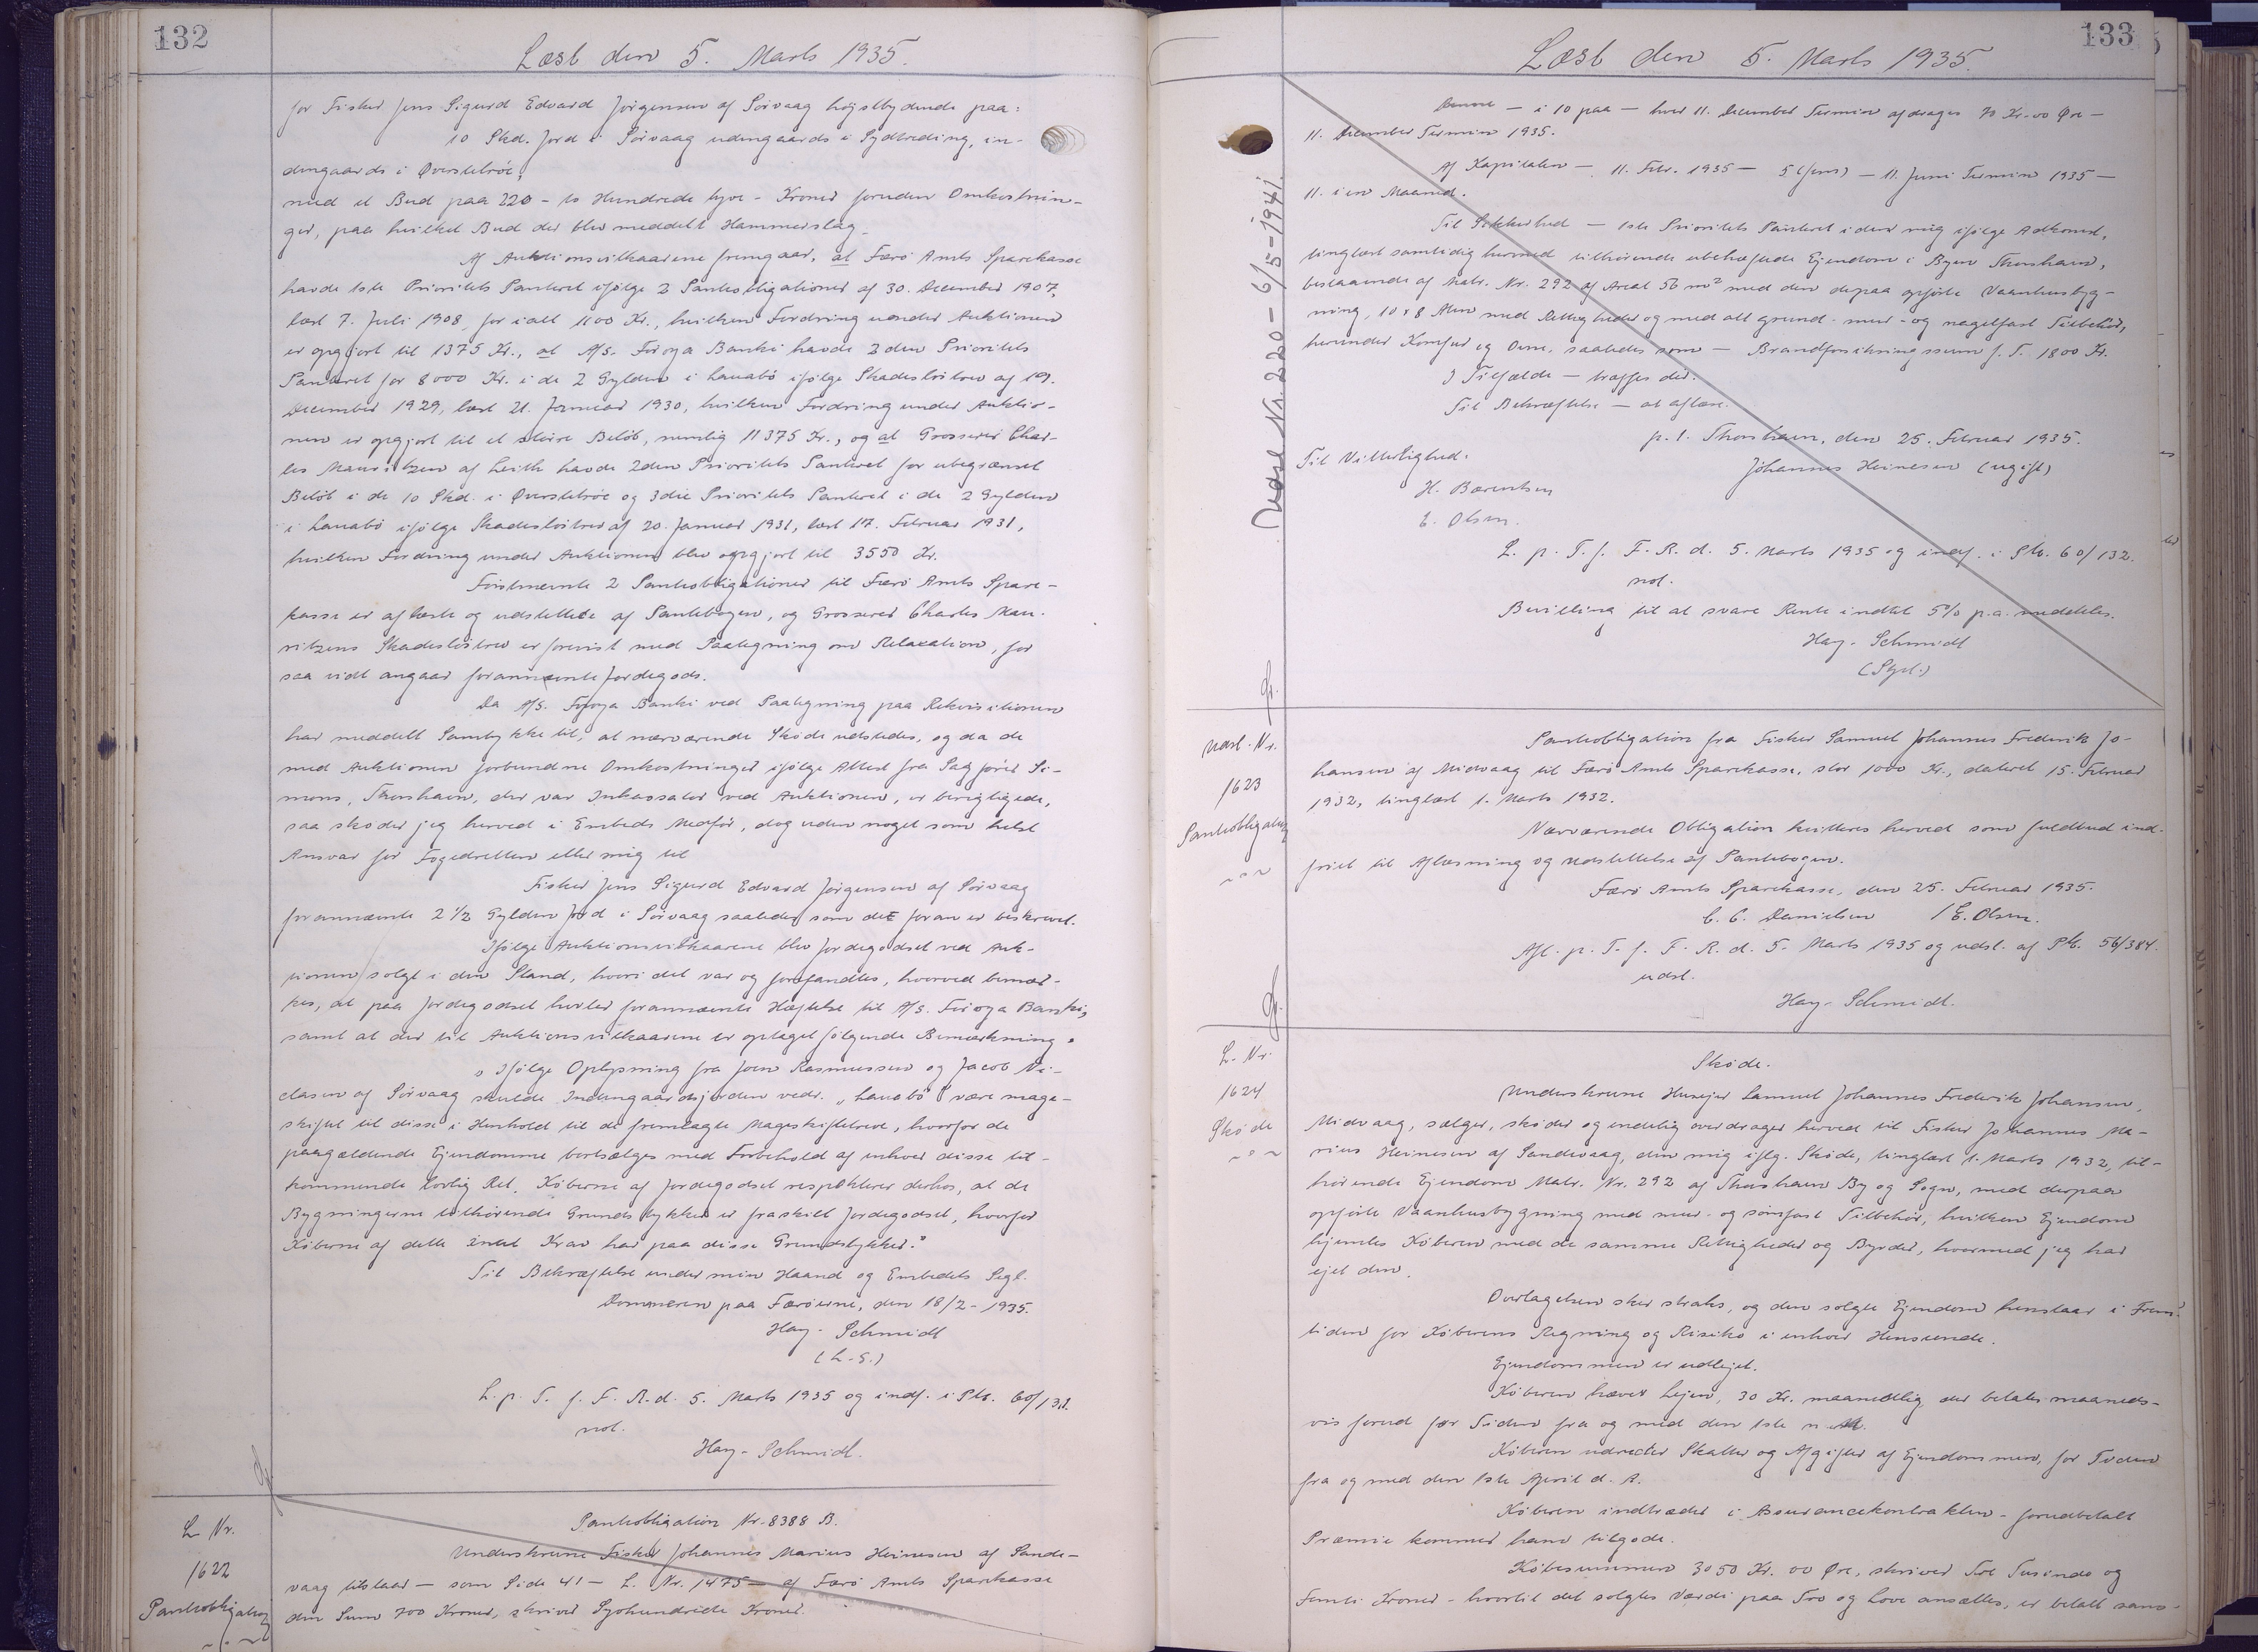 132
Læst den 5. Marts 1935.
for Fisker Jens Sigurd Edvard Jørgensen af Sørvaag højstbydende paa:
10 Skd. Jord i Sørvaag udengaards i Sydtreding, in-
dengaards i Øverstetröe,
med et Bud paa 220 - to Hundrede tyve - Kroner foruden Omkostnin-
ger, paa hvilket Bud der blev meddelt Hammerslag.
Af Auktionsvilkaarene fremgaar, at Færø Amts Sparekasse
havde 1ste Prioritets Panteret ifølge 2 Panteobligationer af 30. December 1907,
læst 7. Juli 1908, for ialt 1100 Kr., hvilken Fordring under Auktionen
er opgjort til 1375 Kr., at A/S. Føroya Banki havde 2den Prioritets
Panteret for 8000 Kr. i de 2 Gylden i Lauabø ifølge Skadesløsbrev af 19.
December 1929, læst 21. Januar 1930, hvilken Fordring under Auktio-
nen er opgjort til et større Beløb, nemlig 11375 Kr., og at Grosserer Char-
les Mauritzen af Leith havde 2den Prioritets Panteret for ubegrænset
Beløb i de 10 Skd. i Øverstetröe og 3die Prioritets Panteret i de 2 Gylden
i Lauabø ifølge Skadesløsbrev af 20. Januar 1931, læst 17. Februar 1931,
hvilken Fordring under Auktionen blev opgjort til 3550 Kr.
Førstnævnte 2 Panteobligationer til Færø Amts Spare-
kasse er aflæste og udslettede af Pantebogen, og Grosserer Charles Mau-
ritzens Skadesløsbrev er forevist med Paategning om Relaxation, for
saa vidt angaar forannævnte Jordegods.
Da A/S. Føroya Banki ved Paategning paa Rekvisitionen
har meddelt Samtykke til, at nærværende Skøde udstedes, og da de
med Auktionen forbundne Omkostninger ifølge Attest fra Sagfører Si-
mons, Thorshavn, der var Inkassator ved Auktionen, er berigtigede,
saa skøder jeg herved i Embeds Medfør, dog uden noget som helst
Ansvar for Fogedretten eller mig til
Fisker Jens Sigurd Edvard Jørgensen af Sørvaag
forannævnte 2 1/2 Gylden Jord i Sørvaag saaledes som det foran er beskrevet.
Ifølge Auktionsvilkaarene blev Jordegodset ved Auk-
tionen solgt i den Stand, hvori det var og forefandtes, hvorved bemær-
kes, at paa Jordegodset hviler forannævnte Hæftelse til A/S. Føroya Banki,
samt at der til Auktionsvilkaarene er optaget følgende Bemærkning:
"Ifølge Oplysning fra Joen Rasmussen og Jacob Ni-
clasen af Sørvaag skulde Indengaardsjorden vedr. "Lauabø" være mage-
skiftet til disse i Henhold til de fremlagte Mageskiftebreve, hvorfor de
paagældende Ejendomme bortsælges med Forbehold af enhver disse til-
kommende lovlig Ret. Køberne af Jordegodset respekterer derhos, at de
Bygningerne tilhørende Grundstykker er fraskilt Jordegodset, hvorfor
Køberne af dette intet Krav har paa disse Grundstykker."
Til Bekræftelse under min Haand og Embedets Segl.
Dommeren paa Færøerne, den 18/2 - 1935.
Hay-Schmidt
(L.S.)
L. p. T. f. F. R. d. 5. Marts 1935 og indf. i Ptb. 60/131.
not.
Hay-Schmidt.
L. Nr.
1622
Panteobligation
Panteobligation Nr. 8388 B.
Underskrevne Fisker Johannes Marius Heinesen af Sande-
vaag tilstaar - som Side 41 - L. Nr. 1475 - af Færø Amts Sparekasse
den Sum 700 Kroner, skriver Syvhundrede Kroner.
133
Læst den 5. Marts 1935.
Denne - i 10 paa - hver 11. December Termin afdrages 70 Kr. 00 Øre -
11. December Termin 1935.
Af Kapitalen - 11. Febr. 1935 - 5 (fem) - 11. Juni Termin 1935 -
11. i en Maaned.
Til Sikkerhed - 1ste Prioritets Panteret i den mig ifølge Adkomst,
tinglæst samtidig hermed tilhørende ubehæftede Ejendom i Byen Thorshavn,
bestaaende af Matr. Nr. 292 af Areal 56 m² med den derpaa opførte Vaanhusbyg-
ning, 10 x 8 Alen med Rettigheder og med alt grund- mur- og nagelfast Tilbehør,
herunder Komfur og Ovne, saaledes som - Brandforsikringssum f. T. 1800 Kr.
I Tilfælde - træffes der.
Til Bekræftelse - at aflæse.
p. t. Thorshavn, den 25. Februar 1935.
Til Vitterlighed:
Johannes Heinesen (ugift)
H. Bærentsen
E. Olsen.
L. p. T. f. F. R. d. 5. Marts 1935 og indf. i Ptb. 60/132.
not.
Bevilling til at svare Rente indtil 5% p.a. meddeles.
Hay-Schmidt
(Stpl.)
Udsl. Nr. 220 - 6/5 - 1941.
Udsl. Nr.
1623
Panteobligation
Panteobligation fra Fisker Samuel Johannes Frederik Jo-
hansen af Midvaag til Færø Amts Sparekasse, stor 1000 Kr., dateret 15. Februar
1932, tinglæst 1. Marts 1932.
Nærværende Obligation kvitteres herved som fuldtud ind-
friet til Aflæsning og Udslettelse af Pantebogen.
Færø Amts Sparekasse, den 25. Februar 1935.
C. C. Danielsen / E. Olsen.
Afl. p. T. f. F. R. d. 5. Marts 1935 og udsl. af Ptb. 56/384.
udsl.
Hay-Schmidt.
L. Nr.
1624
Skøde
Skøde.
Underskrevne Husejer Samuel Johannes Frederik Johansen,
Midvaag, sælger, skøder og endelig overdrager herved til Fisker Johannes Ma-
rius Heinesen af Sandevaag, den mig iflg. Skøde, tinglæst 1. Marts 1932, til-
hørende Ejendom Matr. Nr. 292 af Thorshavn By og Sogn, med derpaa
opførte Vaanhusbygning med mur- og sømfast Tilbehør, hvilken Ejendom
hjemles Køberen med de samme Rettigheder og Byrder, hvormed jeg har
ejet den.
Overtagelsen sker straks, og den solgte Ejendom henstaar i Frem-
tiden for Køberens Regning og Risiko i enhver Henseende.
Ejendommen er udlejet.
Køberen hæver Lejen, 30 Kr. maanedlig der betales maaneds-
vis forud for Tiden fra og med den 1ste n. M.
Køberen udreder Skatter og Afgifter af Ejendommen, for Tiden
fra og med den 1ste April d. A.
Køberen indtræder i Assurancekontrakten - forudbetalt
Præmie kommer ham tilgode.
Købesummen 3050 Kr. 00 Øre, skriver Tre Tusinde og
Femti Kroner - hvortil det solgtes Værdi paa Tro og Love ansættes, er betalt saas-